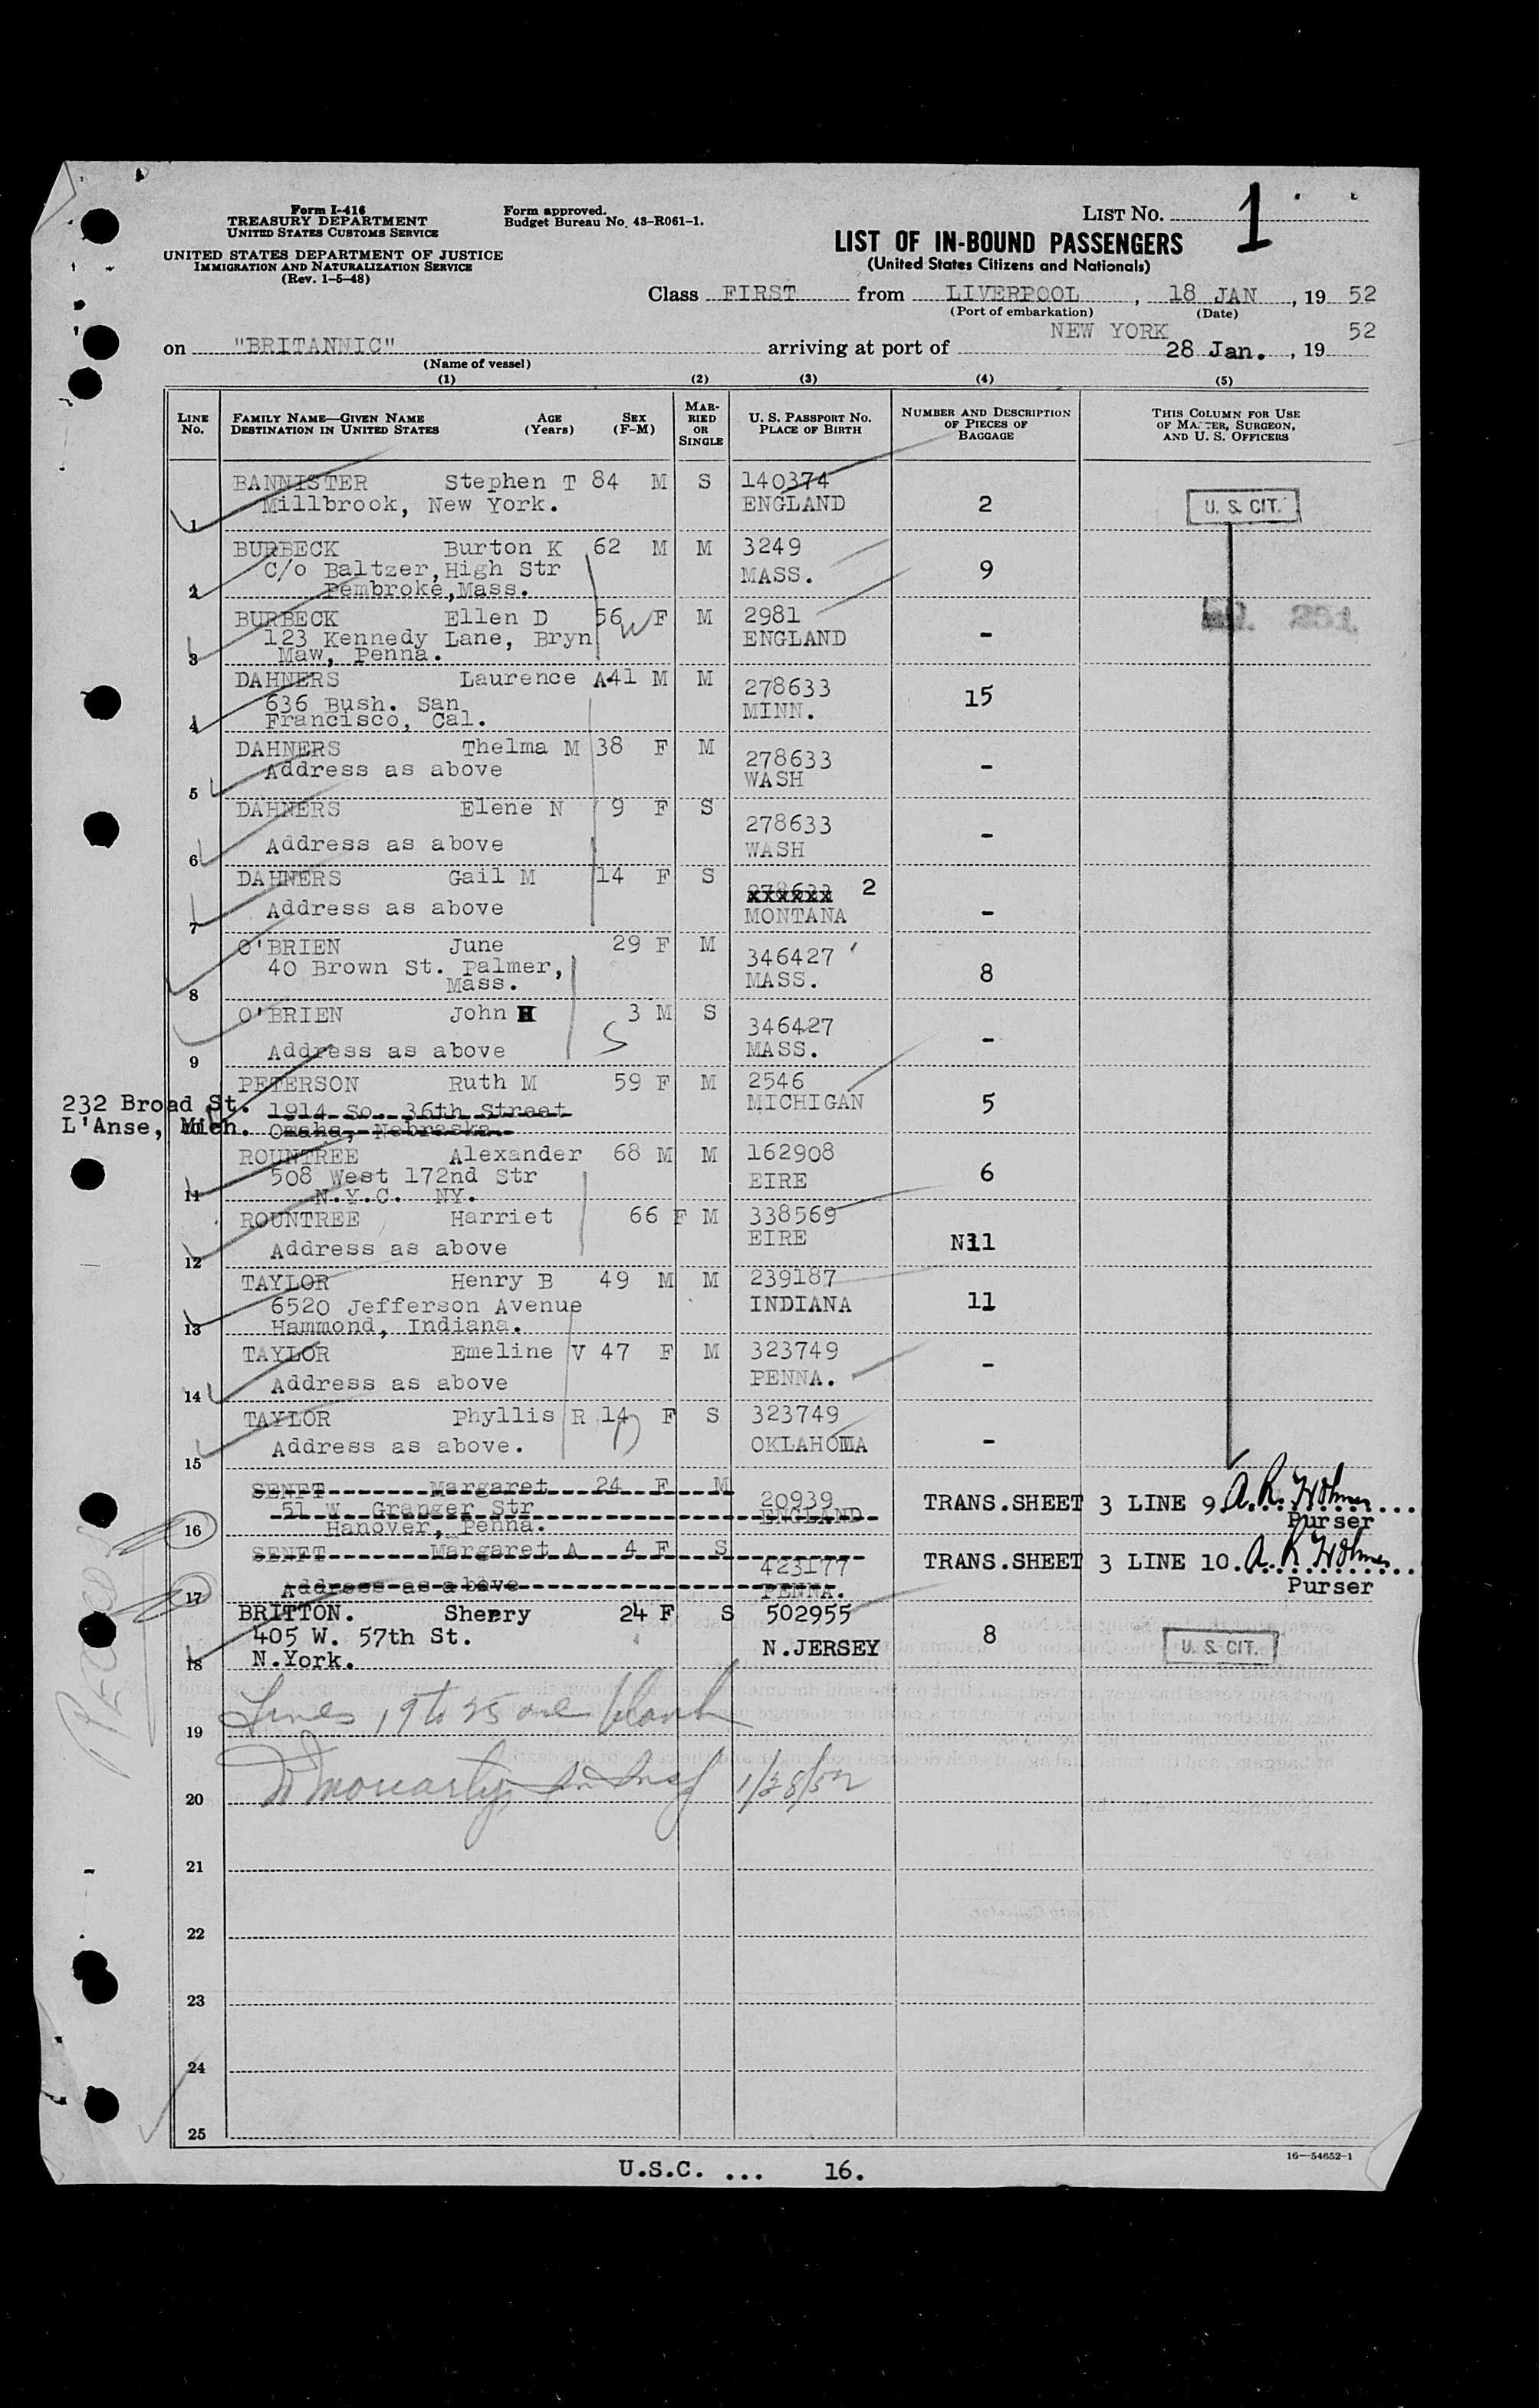 Form I-416
TREASURY DEPARTMENT
UNITED STATES CUSTOMS SERVICE
UNITED STATES DEPARTMENT OF JUSTICE
IMMIGRATION AND NATURALIZATION SERVICE
(Rev. 1-5-48)
Form approved.
Budget Bureau No. 43-R061-1.
LIST NO. 1
LIST OF IN-BOUND PASSENGERS
(United States Citizens and Nationals)
Class FIRST from LIVERPOOL, 18 JAN, 19 52
(Port of embarkation) (Date)
on "BRITANNIC" arriving at port of NEW YORK 28 Jan., 19 52
(Name of vessel)
(1) (2) (3) (4) (5)
LINE NO.
FAMILY NAME—GIVEN NAME
DESTINATION IN UNITED STATES
AGE (Years)
SEX (F-M)
MARRIED OR SINGLE
U. S. PASSPORT NO.
PLACE OF BIRTH
NUMBER AND DESCRIPTION OF PIECES OF BAGGAGE
THIS COLUMN FOR USE OF MASTER, SURGEON, AND U. S. OFFICERS
BANNISTER Stephen T 84 M S 140374
Millbrook, New York. ENGLAND 2 U. S. CIT.
1
BURBECK Burton K 62 M M 3249
C/o Baltzer, High Str MASS. 9
2 Pembroke, Mass.
BURBECK Ellen D 56 W F M 2981
123 Kennedy Lane, Bryn ENGLAND -
3 Maw, Penna.
DAHNERS Laurence A 41 M M 278633
636 Bush. San MINN. 15
4 Francisco, Cal.
DAHNERS Thelma M 38 F M 278633
Address as above WASH -
5
DAHNERS Elene N 9 F S 278633
Address as above WASH -
6
DAHNERS Gail M 14 F S 278633 2
Address as above MONTANA -
7
O'BRIEN June 29 F M 346427
40 Brown St. Palmer, MASS. 8
8 Mass.
O'BRIEN John H 3 M S 346427
Address as above MASS. -
9
PETERSON Ruth M 59 F M 2546
232 Broad St. 1914 So. 36th Street MICHIGAN 5
L'Anse, Mich. 10 Omaha, Nebraska
ROUNTREE Alexander 68 M M 162908
508 West 172nd Str EIRE 6
11 N.Y.C. NY.
ROUNTREE Harriet 66 F M 338569
Address as above EIRE N11
12
TAYLOR Henry B 49 M M 239187
6520 Jefferson Avenue INDIANA 11
13 Hammond, Indiana.
TAYLOR Emeline V 47 F M 323749
Address as above PENNA. -
14
TAYLOR Phyllis R 14 F S 323749
Address as above. OKLAHOMA -
15
SENFT Margaret 24 F M 20939 TRANS.SHEET 3 LINE 9
51 W. Granger Str ENGLAND Purser
16 Hanover, Penna.
SENFT Margaret A 4 F S 423177 TRANS.SHEET 3 LINE 10.
Address as above PENNA. Purser
17
BRITTON. Sherry 24 F S 502955
405 W. 57th St. N.JERSEY 8 U. S. CIT.
18 N.York.
Lines 19 to 25 are blank
19
Moriarty 1/28/52
20
21
22
23
24
25
16—54652-1
U.S.C. ... 16.